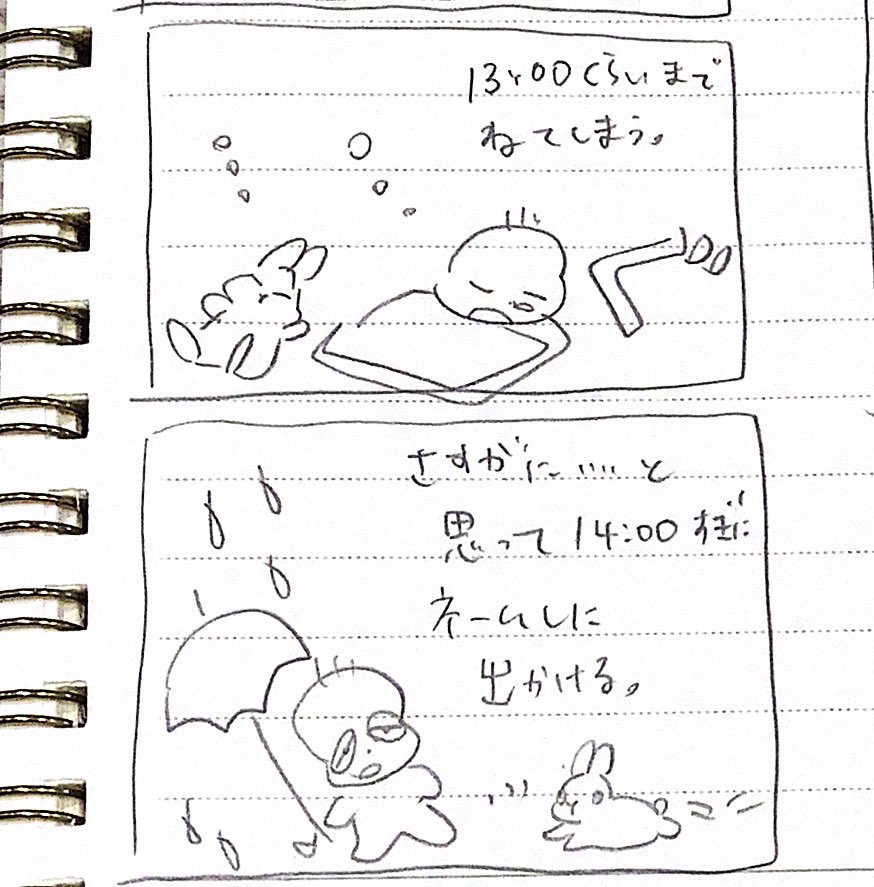 13:00くらいまで
ねてしまう。
さすがに……と
思って14:00すぎに
ネームしに
出かける。